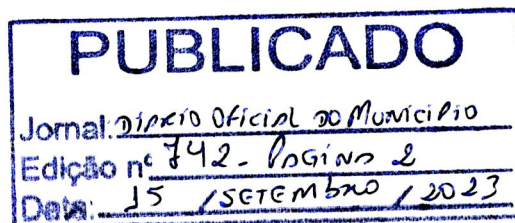 PUBLICADO
Jornal: DIÁRIO OFICIAL DO MUNICIPIO
Edição nº 742 - PAGINA 2
Data: 15 / SETEMBRO / 2023